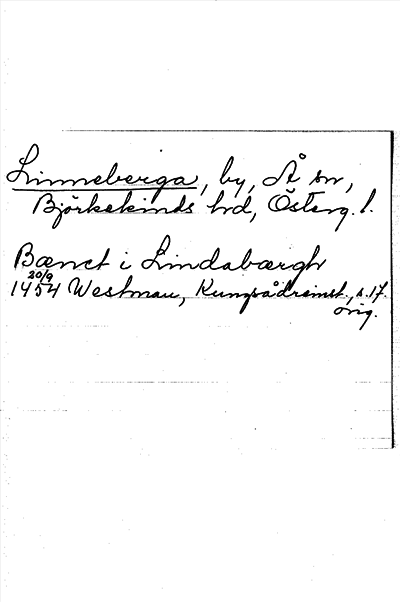 Linneberga, by, Å sn,
Björkekinds hd, Österg. l.
Bænct i Lindabærgh
20/9
1454 Westman, Kungsådreinst., s. 17.
orig.